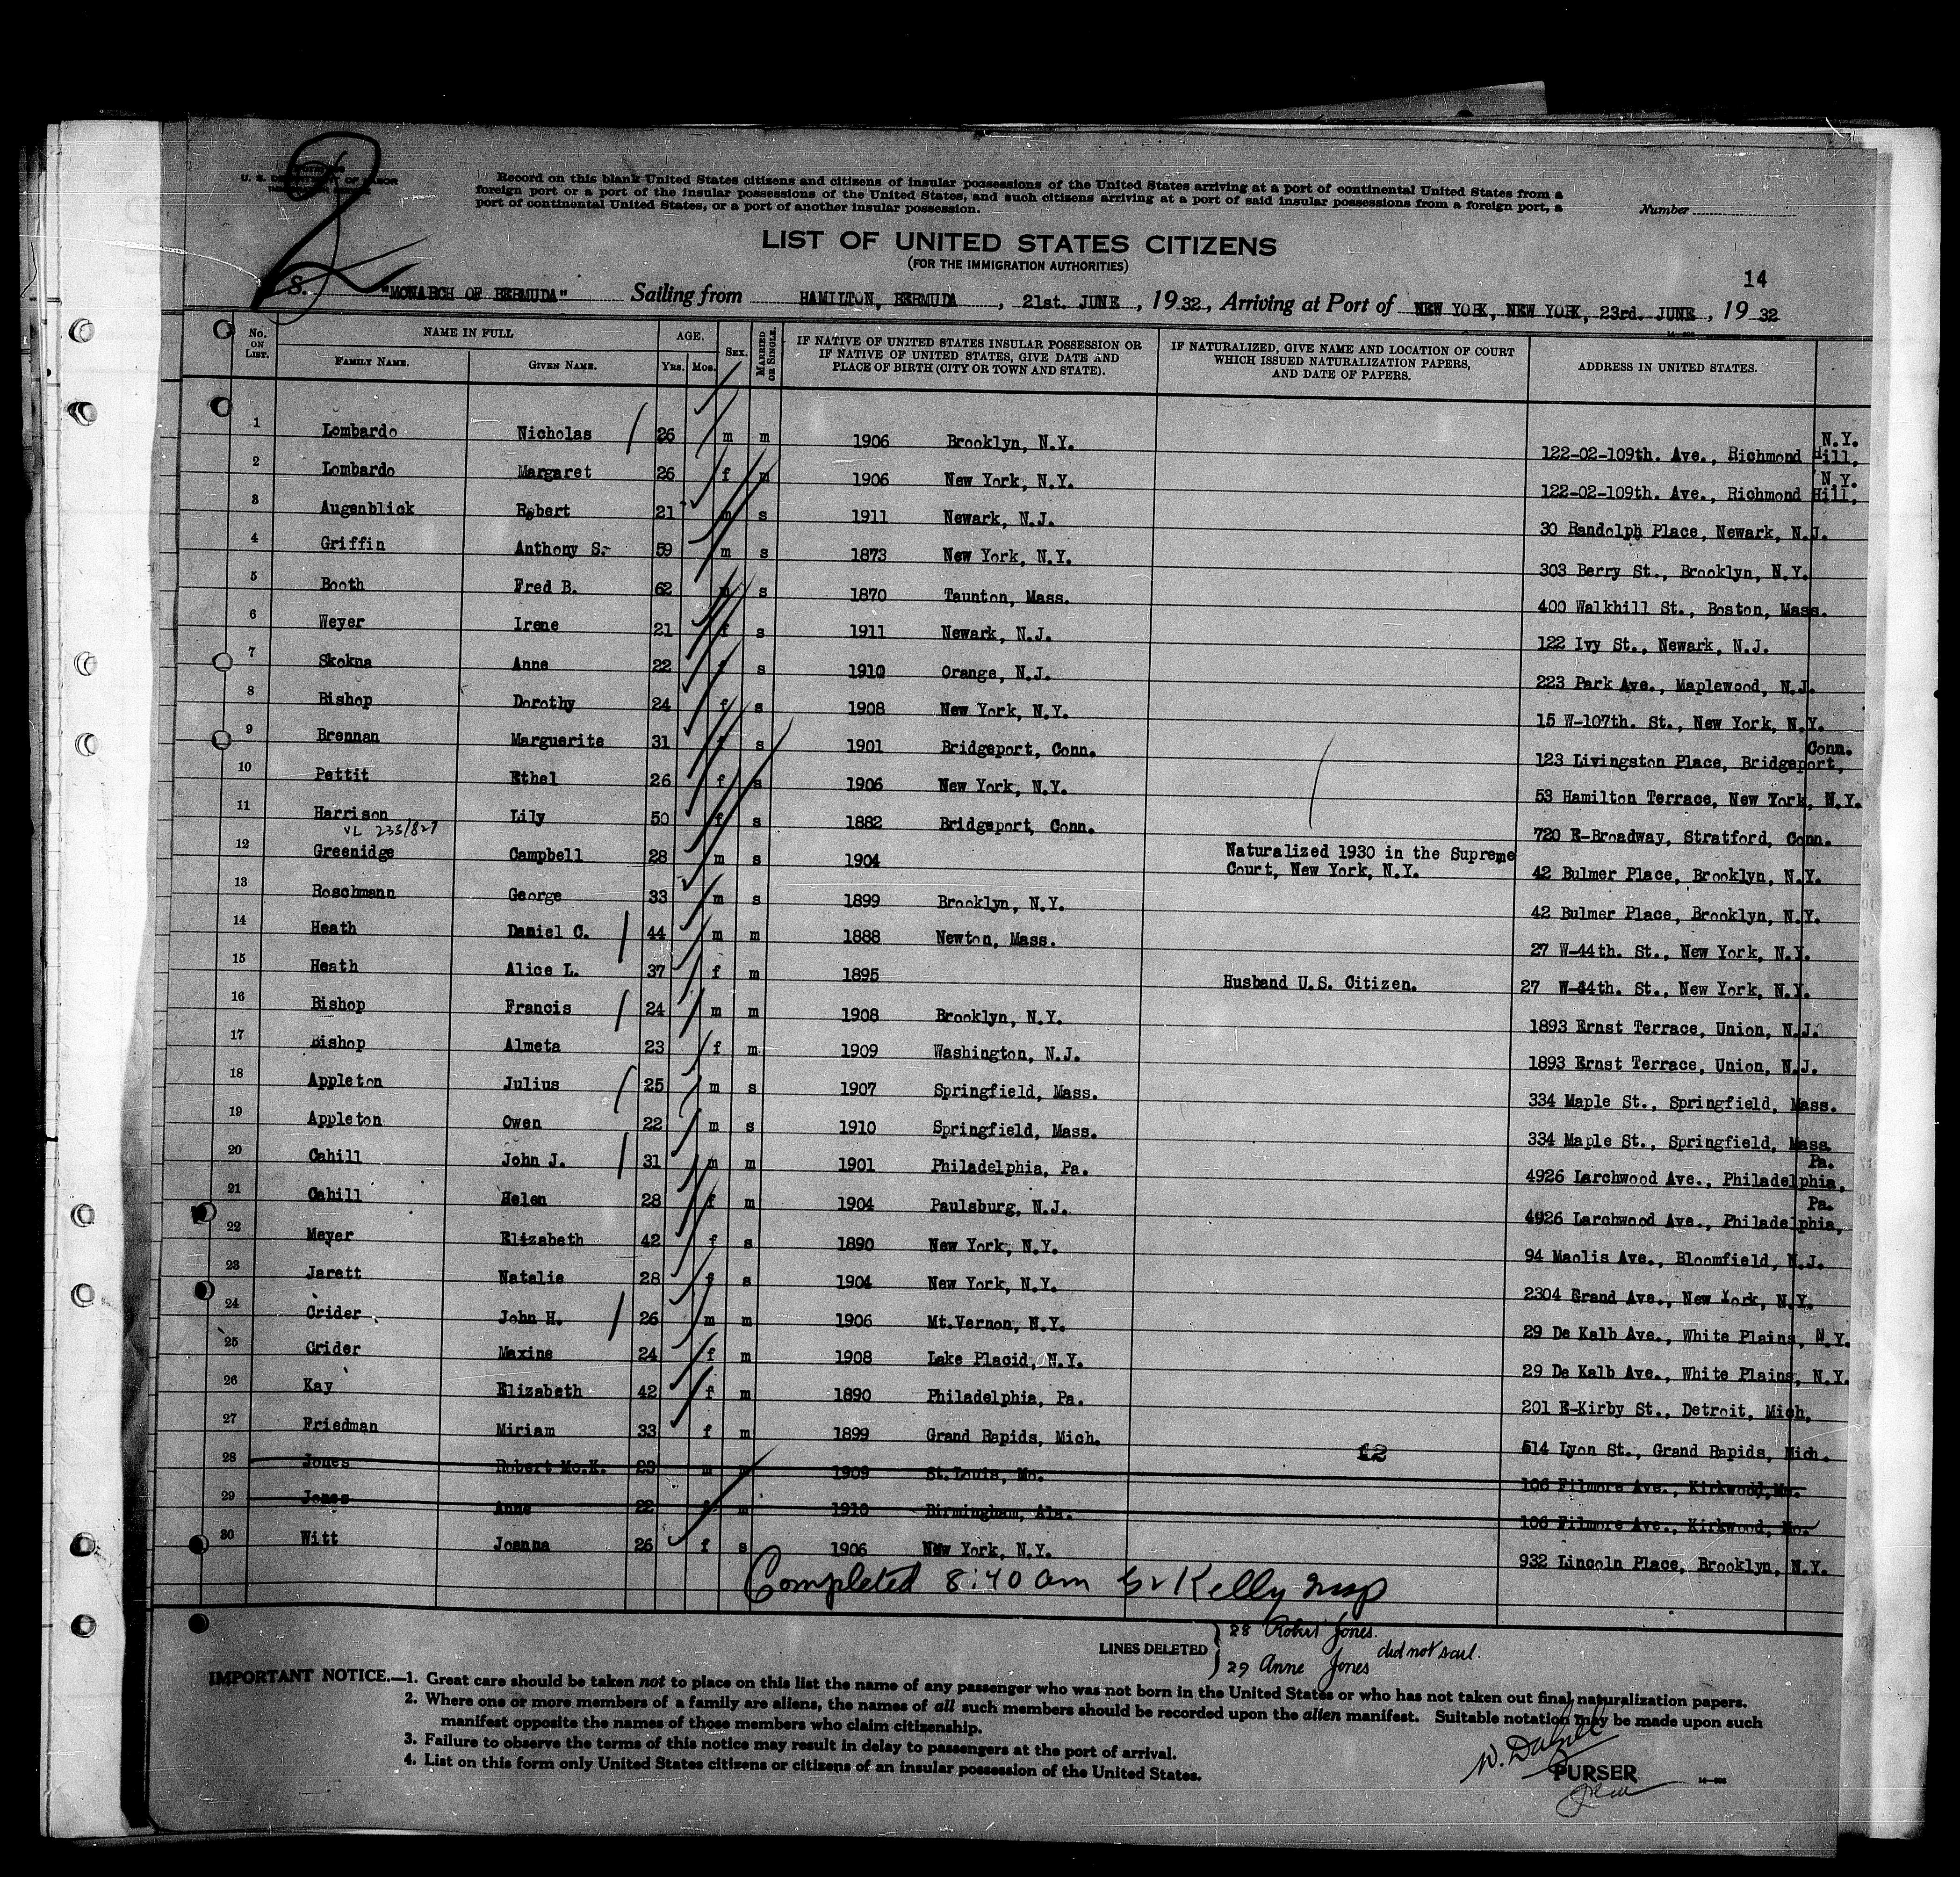 U. S. DEPARTMENT OF LABOR
Record on this blank United States citizens and citizens of insular possessions of the United States arriving at a port of continental United States from a
foreign port or a port of the insular possessions of the United States, and such citizens arriving at a port of said insular possessions from a foreign port, a
port of continental United States, or a port of another insular possession.
Number
LIST OF UNITED STATES CITIZENS
(FOR THE IMMIGRATION AUTHORITIES)
14
S. "MONARCH OF BERMUDA" Sailing from HAMILTON, BERMUDA, 21st. JUNE, 1932, Arriving at Port of NEW YORK, NEW YORK, 23rd. JUNE, 1932
No. ON LIST. NAME IN FULL FAMILY NAME. GIVEN NAME. AGE. Yrs. Mos. SEX. MARRIED OR SINGLE. IF NATIVE OF UNITED STATES INSULAR POSSESSION OR IF NATIVE OF UNITED STATES, GIVE DATE AND PLACE OF BIRTH (CITY OR TOWN AND STATE). IF NATURALIZED, GIVE NAME AND LOCATION OF COURT WHICH ISSUED NATURALIZATION PAPERS, AND DATE OF PAPERS. ADDRESS IN UNITED STATES.
1 Lombardo Nicholas 26 m m 1906 Brooklyn, N.Y. 122-02-109th. Ave., Richmond Hill, N.Y.
2 Lombardo Margaret 26 f m 1906 New York, N.Y. 122-02-109th. Ave., Richmond Hill, N.Y.
3 Augenblick Robert 21 m s 1911 Newark, N.J. 30 Randolph Place, Newark, N.J.
4 Griffin Anthony S. 59 m s 1873 New York, N.Y. 303 Berry St., Brooklyn, N.Y.
5 Booth Fred B. 62 m s 1870 Taunton, Mass. 400 Walkhill St., Boston, Mass.
6 Weyer Irene 21 f s 1911 Newark, N.J. 122 Ivy St., Newark, N.J.
7 Skokna Anne 22 f s 1910 Orange, N.J. 223 Park Ave., Maplewood, N.J.
8 Bishop Dorothy 24 f s 1908 New York, N.Y. 15 W-107th. St., New York, N.Y.
9 Brennan Marguerite 31 f s 1901 Bridgeport, Conn. 123 Livingston Place, Bridgeport, Conn.
10 Pettit Ethel 26 f s 1906 New York, N.Y. 53 Hamilton Terrace, New York, N.Y.
11 Harrison Lily 50 f s 1882 Bridgeport, Conn. 720 E-Broadway, Stratford, Conn.
VL 233/827
12 Greenidge Campbell 28 m s 1904 Naturalized 1930 in the Supreme Court, New York, N.Y. 42 Bulmer Place, Brooklyn, N.Y.
13 Roschmann George 33 m s 1899 Brooklyn, N.Y. 42 Bulmer Place, Brooklyn, N.Y.
14 Heath Daniel C. 44 m m 1888 Newton, Mass. 27 W-44th. St., New York, N.Y.
15 Heath Alice L. 37 f m 1895 Husband U.S. Citizen. 27 W-44th. St., New York, N.Y.
16 Bishop Francis 24 m m 1908 Brooklyn, N.Y. 1893 Ernst Terrace, Union, N.J.
17 Bishop Almeta 23 f m 1909 Washington, N.J. 1893 Ernst Terrace, Union, N.J.
18 Appleton Julius 25 m s 1907 Springfield, Mass. 334 Maple St., Springfield, Mass.
19 Appleton Owen 22 m s 1910 Springfield, Mass. 334 Maple St., Springfield, Mass.
20 Cahill John J. 31 m m 1901 Philadelphia, Pa. 4926 Larchwood Ave., Philadelphia, Pa.
21 Cahill Helen 28 f m 1904 Paulsburg, N.J. 4926 Larchwood Ave., Philadelphia, Pa.
22 Meyer Elizabeth 42 f s 1890 New York, N.Y. 94 Maolis Ave., Bloomfield, N.J.
23 Jarett Natalie 28 f s 1904 New York, N.Y. 2304 Grand Ave., New York, N.Y.
24 Crider John H. 26 m m 1906 Mt.Vernon, N.Y. 29 De Kalb Ave., White Plains, N.Y.
25 Crider Maxine 24 f m 1908 Lake Placid, N.Y. 29 De Kalb Ave., White Plains, N.Y.
26 Kay Elizabeth 42 f m 1890 Philadelphia, Pa. 201 E-Kirby St., Detroit, Mich.
27 Friedman Miriam 33 f m 1899 Grand Rapids, Mich. 514 Lyon St., Grand Rapids, Mich.
28 Jones Robert Mc.K. 23 m m 1909 St.Louis, Mo. 106 Filmore Ave., Kirkwood, Mo.
29 Jones Anne 22 f m 1910 Birmingham, Ala. 106 Filmore Ave., Kirkwood, Mo.
30 Witt Joanna 26 f s 1906 New York, N.Y. 932 Lincoln Place, Brooklyn, N.Y.
Completed 8:40 am Kelly Insp
LINES DELETED 28 Robert Jones.
29 Anne Jones did not sail.
IMPORTANT NOTICE.—1. Great care should be taken not to place on this list the name of any passenger who was not born in the United States or who has not taken out final naturalization papers.
2. Where one or more members of a family are aliens, the names of all such members should be recorded upon the alien manifest. Suitable notation may be made upon such
manifest opposite the names of those members who claim citizenship.
3. Failure to observe the terms of this notice may result in delay to passengers at the port of arrival.
4. List on this form only United States citizens or citizens of an insular possession of the United States.
PURSER